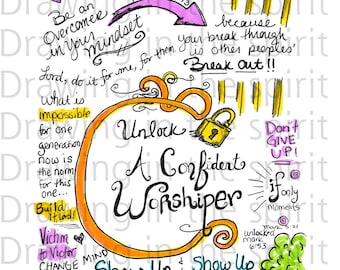 Be an
Overcomer
in your
Mindset
because
your break through
is other peoples'
Break Out!!
Lord, do it for me, for them
What is
impossible
for one
generation
now is
the norm
for this
one...
Build
it Lord!
Unlock
A Confident
Worshiper
Don't
GIVE
UP!
if only
moments
unlocked
mark
6:53
Victim
to Victor
CHANGE MIND
Show Up & Show Up
Drawing in the Spirit